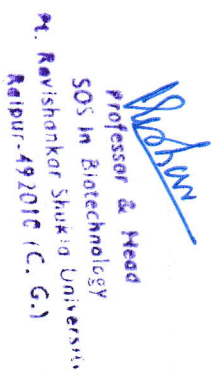 Professor & Head
SOS in Biotechnology
Pt. Ravishankar Shukla University
Raipur-492010 (C. G.)